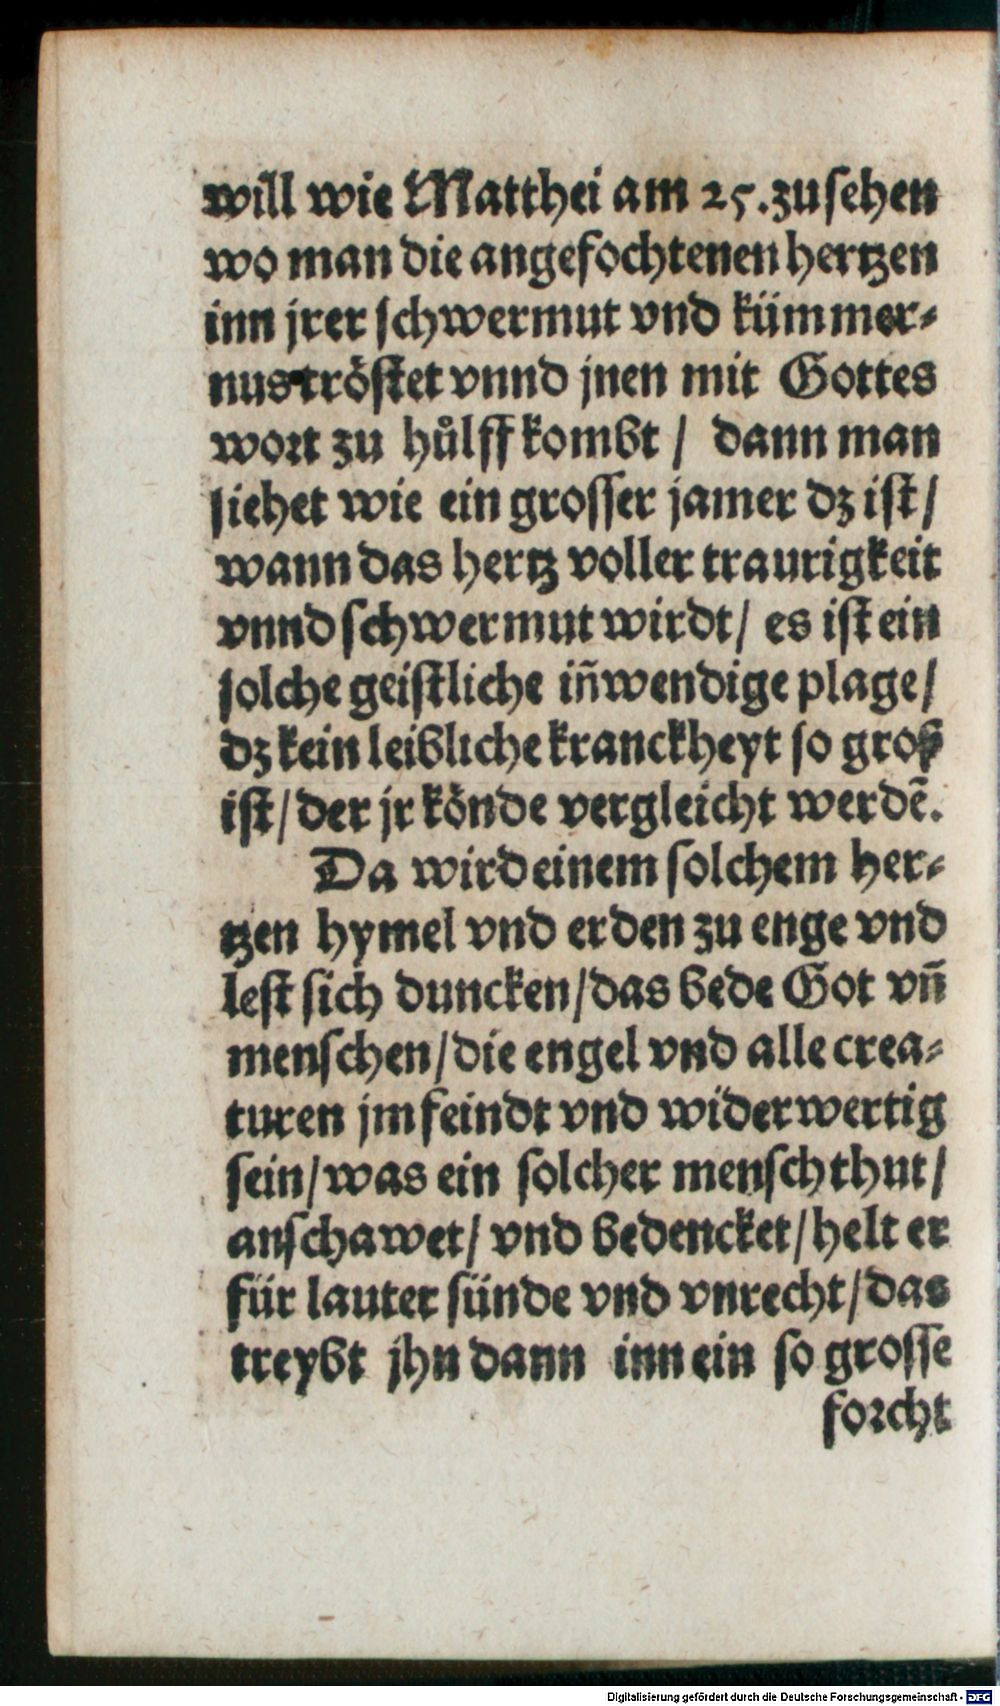 will wie Matthei am 25. zu sehen
wo man die angefochtenen hertzen
inn jrer schwermut vnd kümmer-
nus tröstet vnnd jnen mit Gottes
wort zu hůlff kombt / dann man
siehet wie ein grosser jamer dz ist /
wann das hertz voller traurigkeit
vnnd schwermut wirdt / es ist ein
solche geistliche iñwendige plage /
dz kein leibliche kranckheyt so groß
ist / der jr könde vergleicht werdẽ.
Da wird einem solchem her-
tzen hymel vnd erden zu enge vnd
lest sich duncken / das bede Got vñ
menschen / die engel vnd alle crea-
turen jm feindt vnd widerwertig
sein / was ein solcher mensch thut /
anschawet / vnd bedencket / helt er
für lauter sünde vnd vnrecht / das
treybt jhn dann inn ein so grosse
forcht
Digitalisierung gefördert durch die Deutsche Forschungsgemeinschaft - DFG